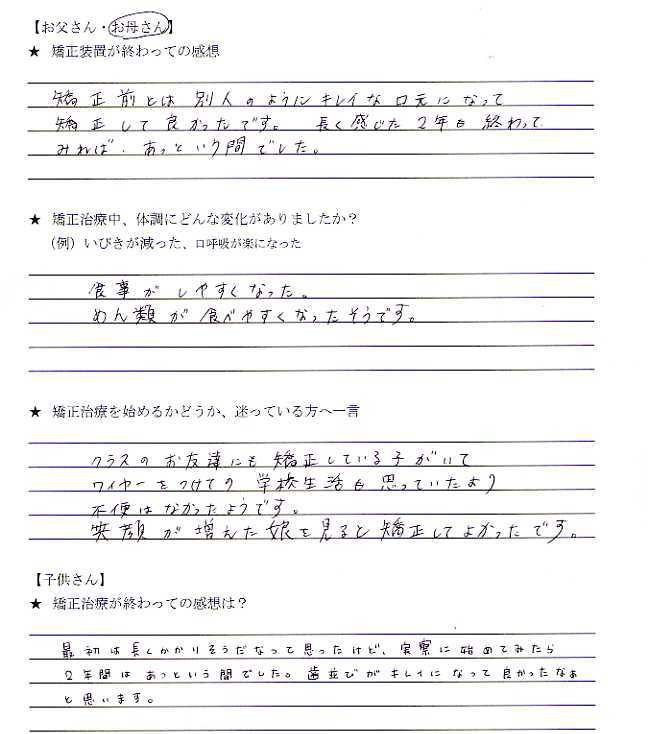 【お父さん・お母さん】
★ 矯正装置が終わっての感想
矯正前とは別人のようにキレイな口元になって
矯正して良かったです。長く感じた2年も終わって
みれば、あっという間でした。
★ 矯正治療中、体調にどんな変化がありましたか？
（例）いびきが減った、口呼吸が楽になった
食事がしやすくなった。
めん類が食べやすくなったそうです。
★ 矯正治療を始めるかどうか、迷っている方へ一言
クラスのお友達にも矯正している子がいて
ワイヤーをつけての学校生活も思っていたより
不便はなかったようです。
笑顔が増えた娘を見ると矯正してよかったです。
【子供さん】
★ 矯正治療が終わっての感想は？
最初は長くかかりそうだなって思ったけど、実際に始めてみたら
2年間はあっという間でした。歯並びがキレイになって良かったなぁ
と思います。